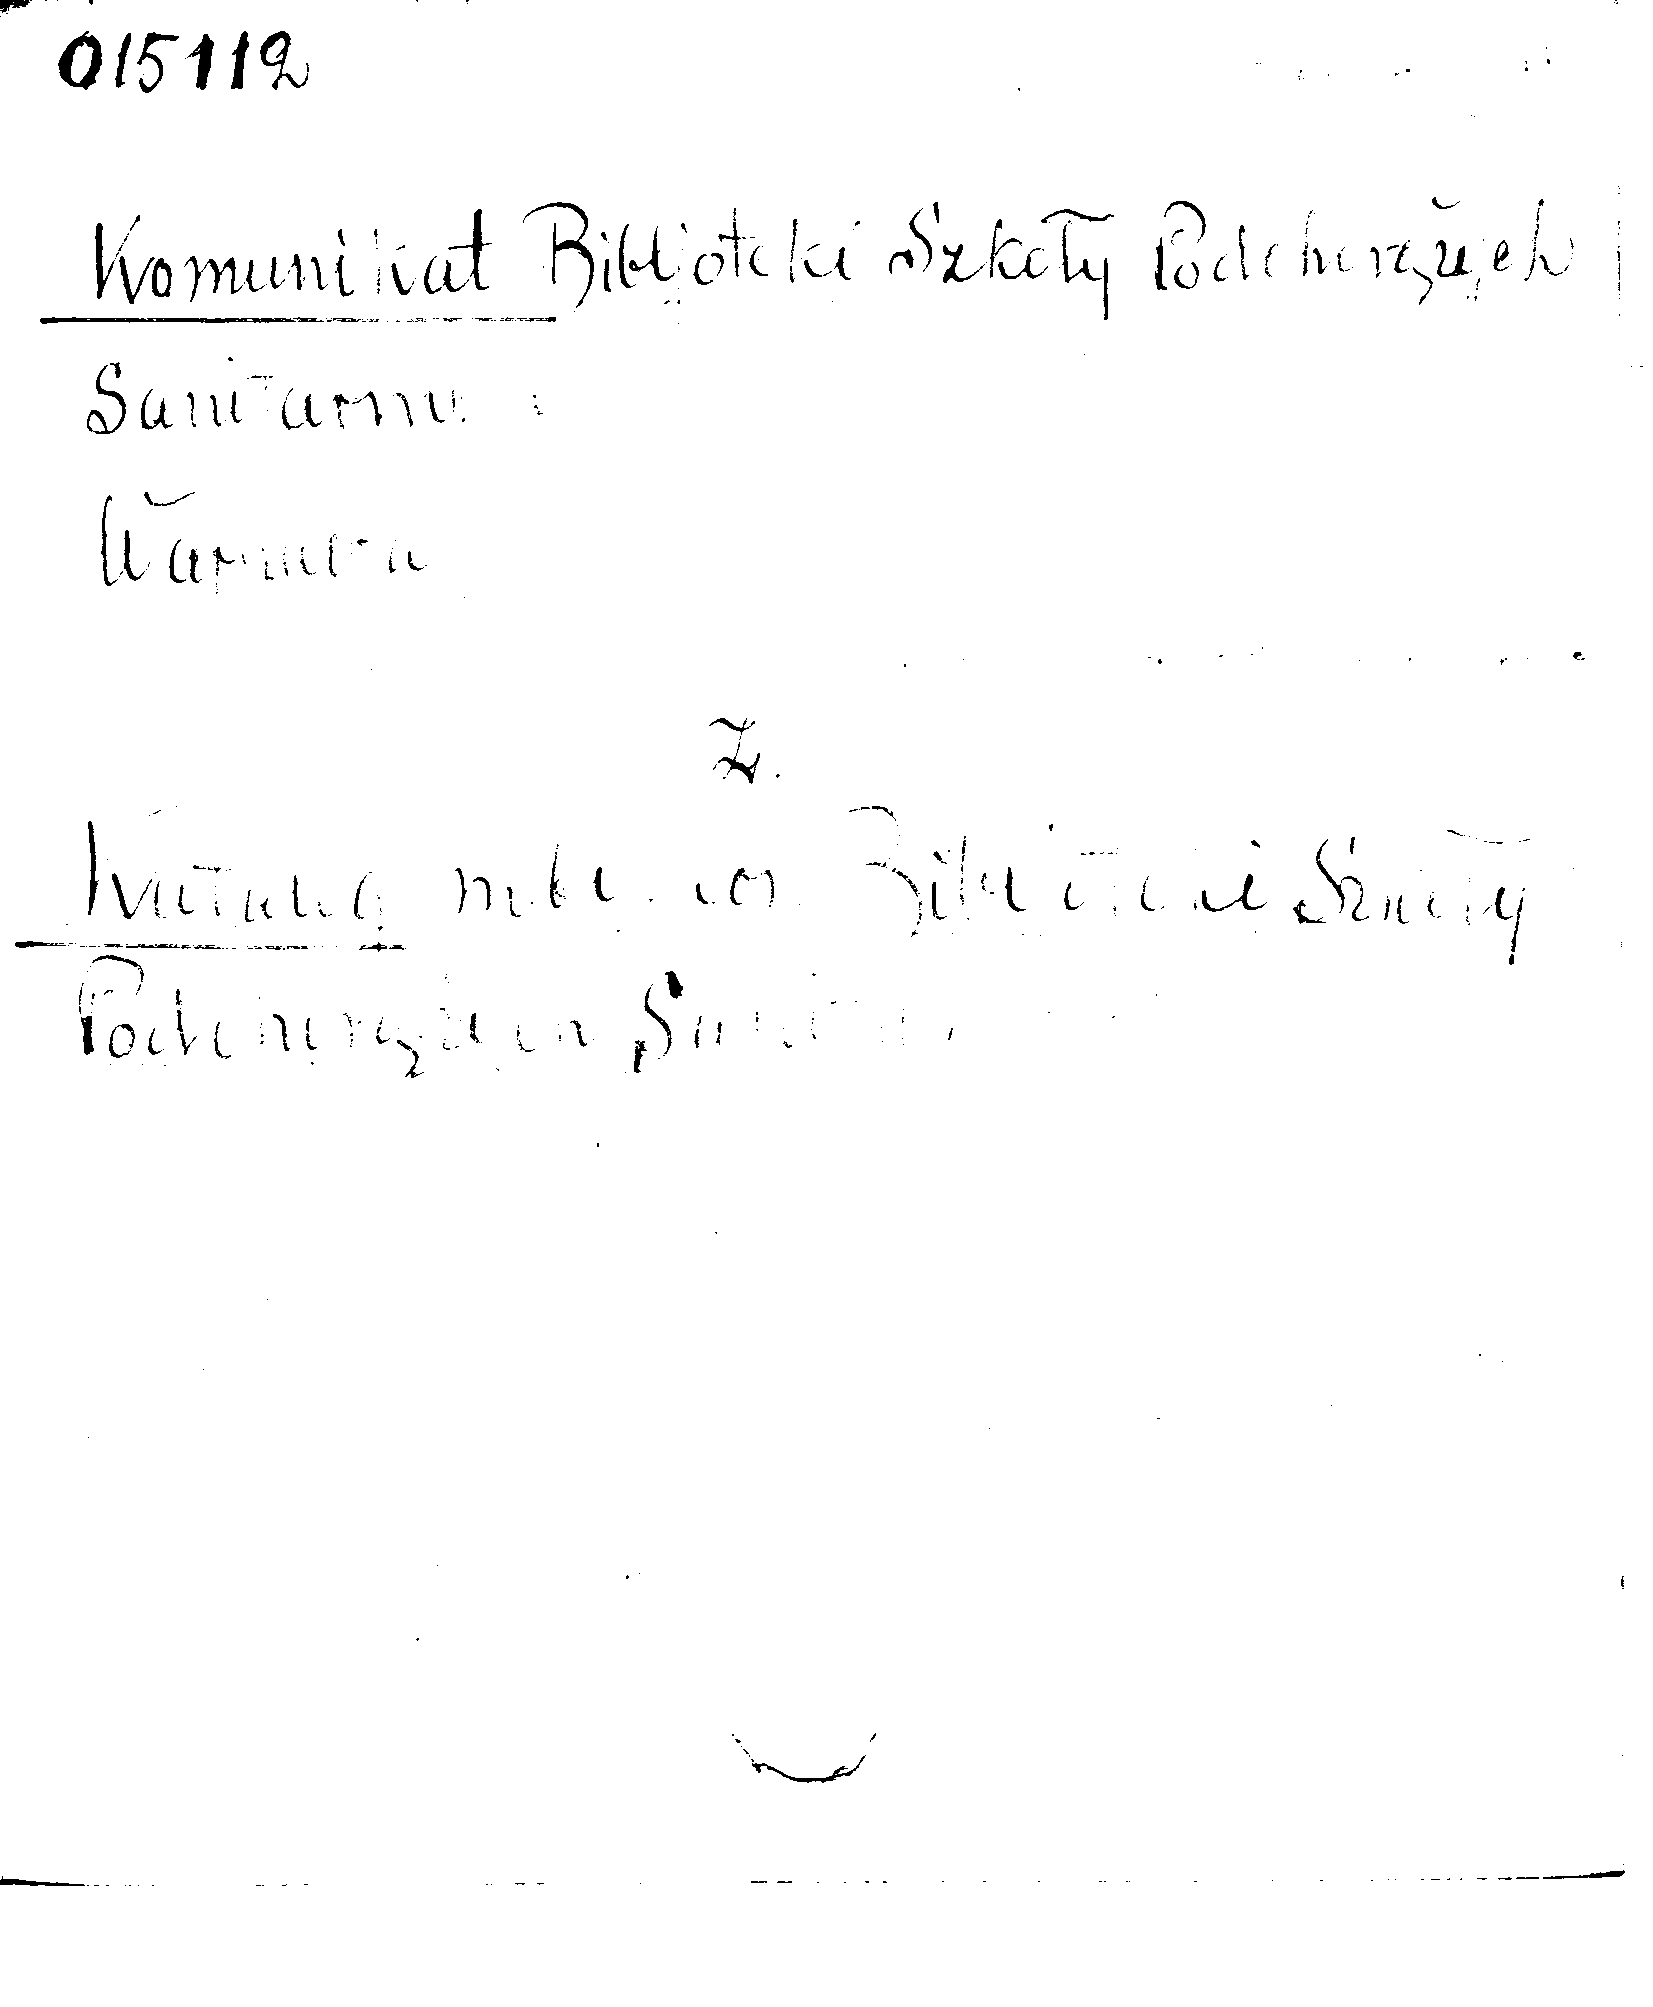 015112
Komunikat Bibljoteki Szkoły Podchorążych
Sanitarnych
Warszawa
Z.
Bibljoteki Szkoły
Podchorążych Sanitarn.